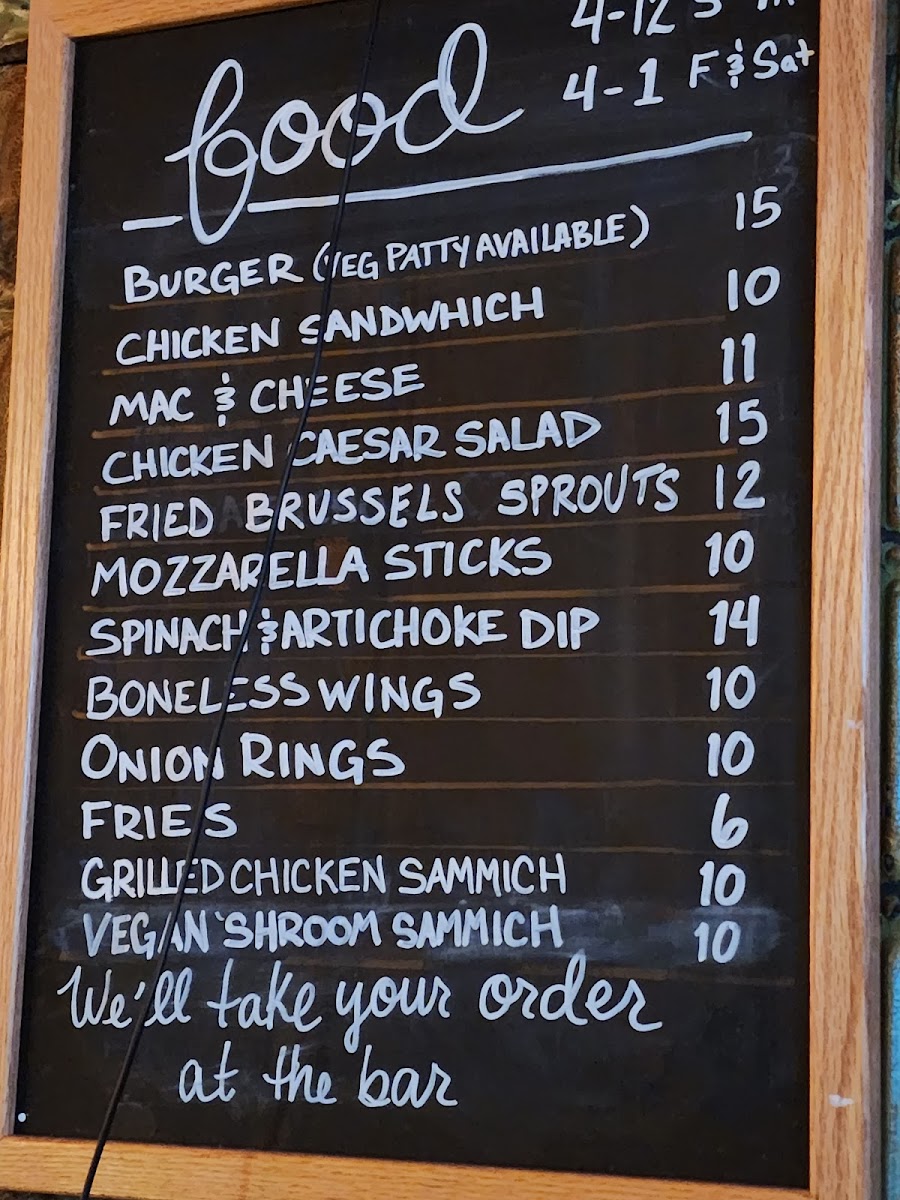 4-12 S
food 4-1 F & Sat
BURGER (VEG PATTY AVAILABLE) 15
CHICKEN SANDWHICH 10
MAC & CHEESE 11
CHICKEN CAESAR SALAD 15
FRIED BRUSSELS SPROUTS 12
MOZZARELLA STICKS 10
SPINACH & ARTICHOKE DIP 14
BONELESS WINGS 10
ONION RINGS 10
FRIES 6
GRILLED CHICKEN SAMMICH 10
VEGAN 'SHROOM SAMMICH 10
We'll take your order
at the bar